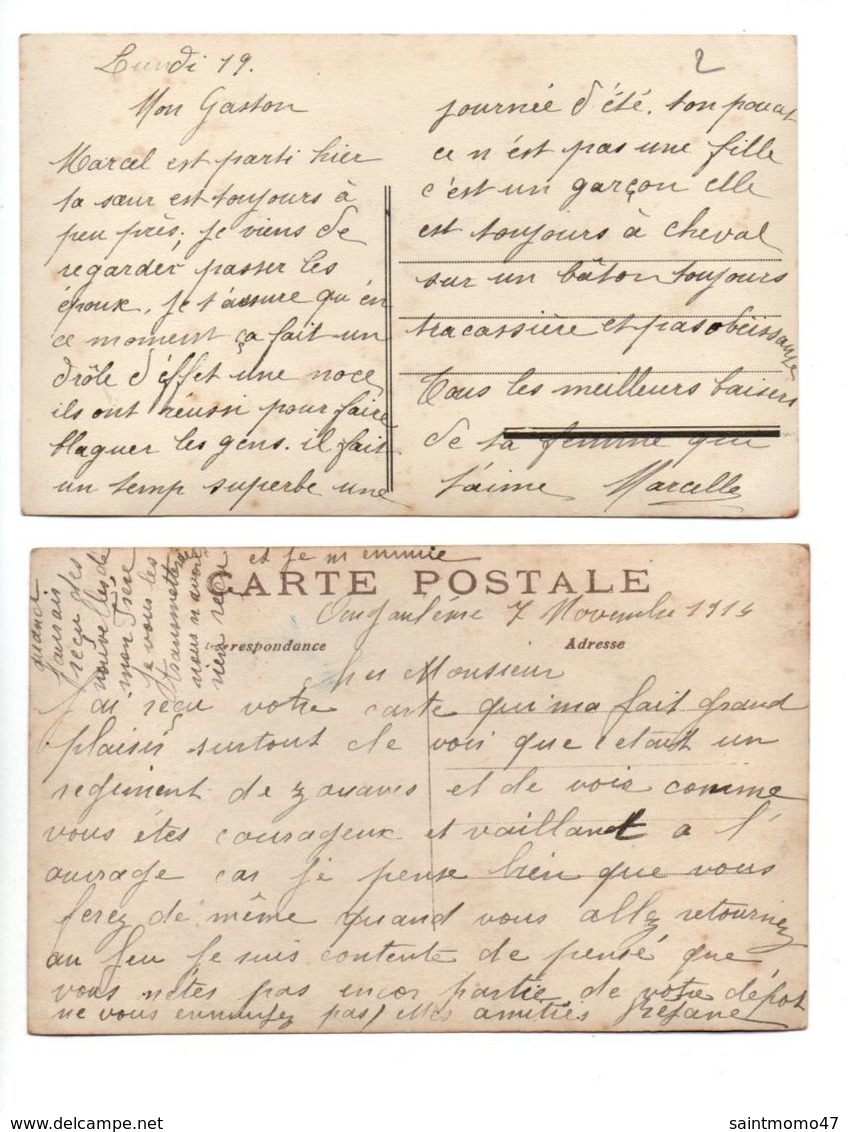 Lundi 19.
2
Mon Gaston
Marcel est parti hier
ta sœur est toujours à
peu près. Je viens de
regarder passer les
époux, je t'assure qu'en
ce moment ça fait un
drôle d'éffet une noce
ils ont réussi pour faire
blaguer les gens. il fait
un temp superbe une
journée d'été. ton
ce n'est pas une fille
c'est un garçon elle
est toujours à cheval
sur un bâton toujours
tracassière et pas obeissante
Tous les meilleurs baisers
de ta femme qui
t'aime Marcelle
CARTE POSTALE
Correspondance
Adresse
Angoulême 7 Novembre 1914
Cher Monsieur
J'ai reçu votre carte qui ma fait grand
plaisir surtout de voir que cetait un
regiment de zouaves et de voir comme
vous étes courageux et vaillant a l'
ouvrage car je pense bien que vous
ferez de même quand vous allez retournez
au feu je suis contente de pensé que
vous nétes pas encor partie de votre dépot
ne vous ennuyez pas Mes amitiés
quand
j'aurais
reçu des
nouvelles de
mon frère
je vous les
transmettrai
nous n'avons
rien reçu
et je m'ennuie
saintmomo47